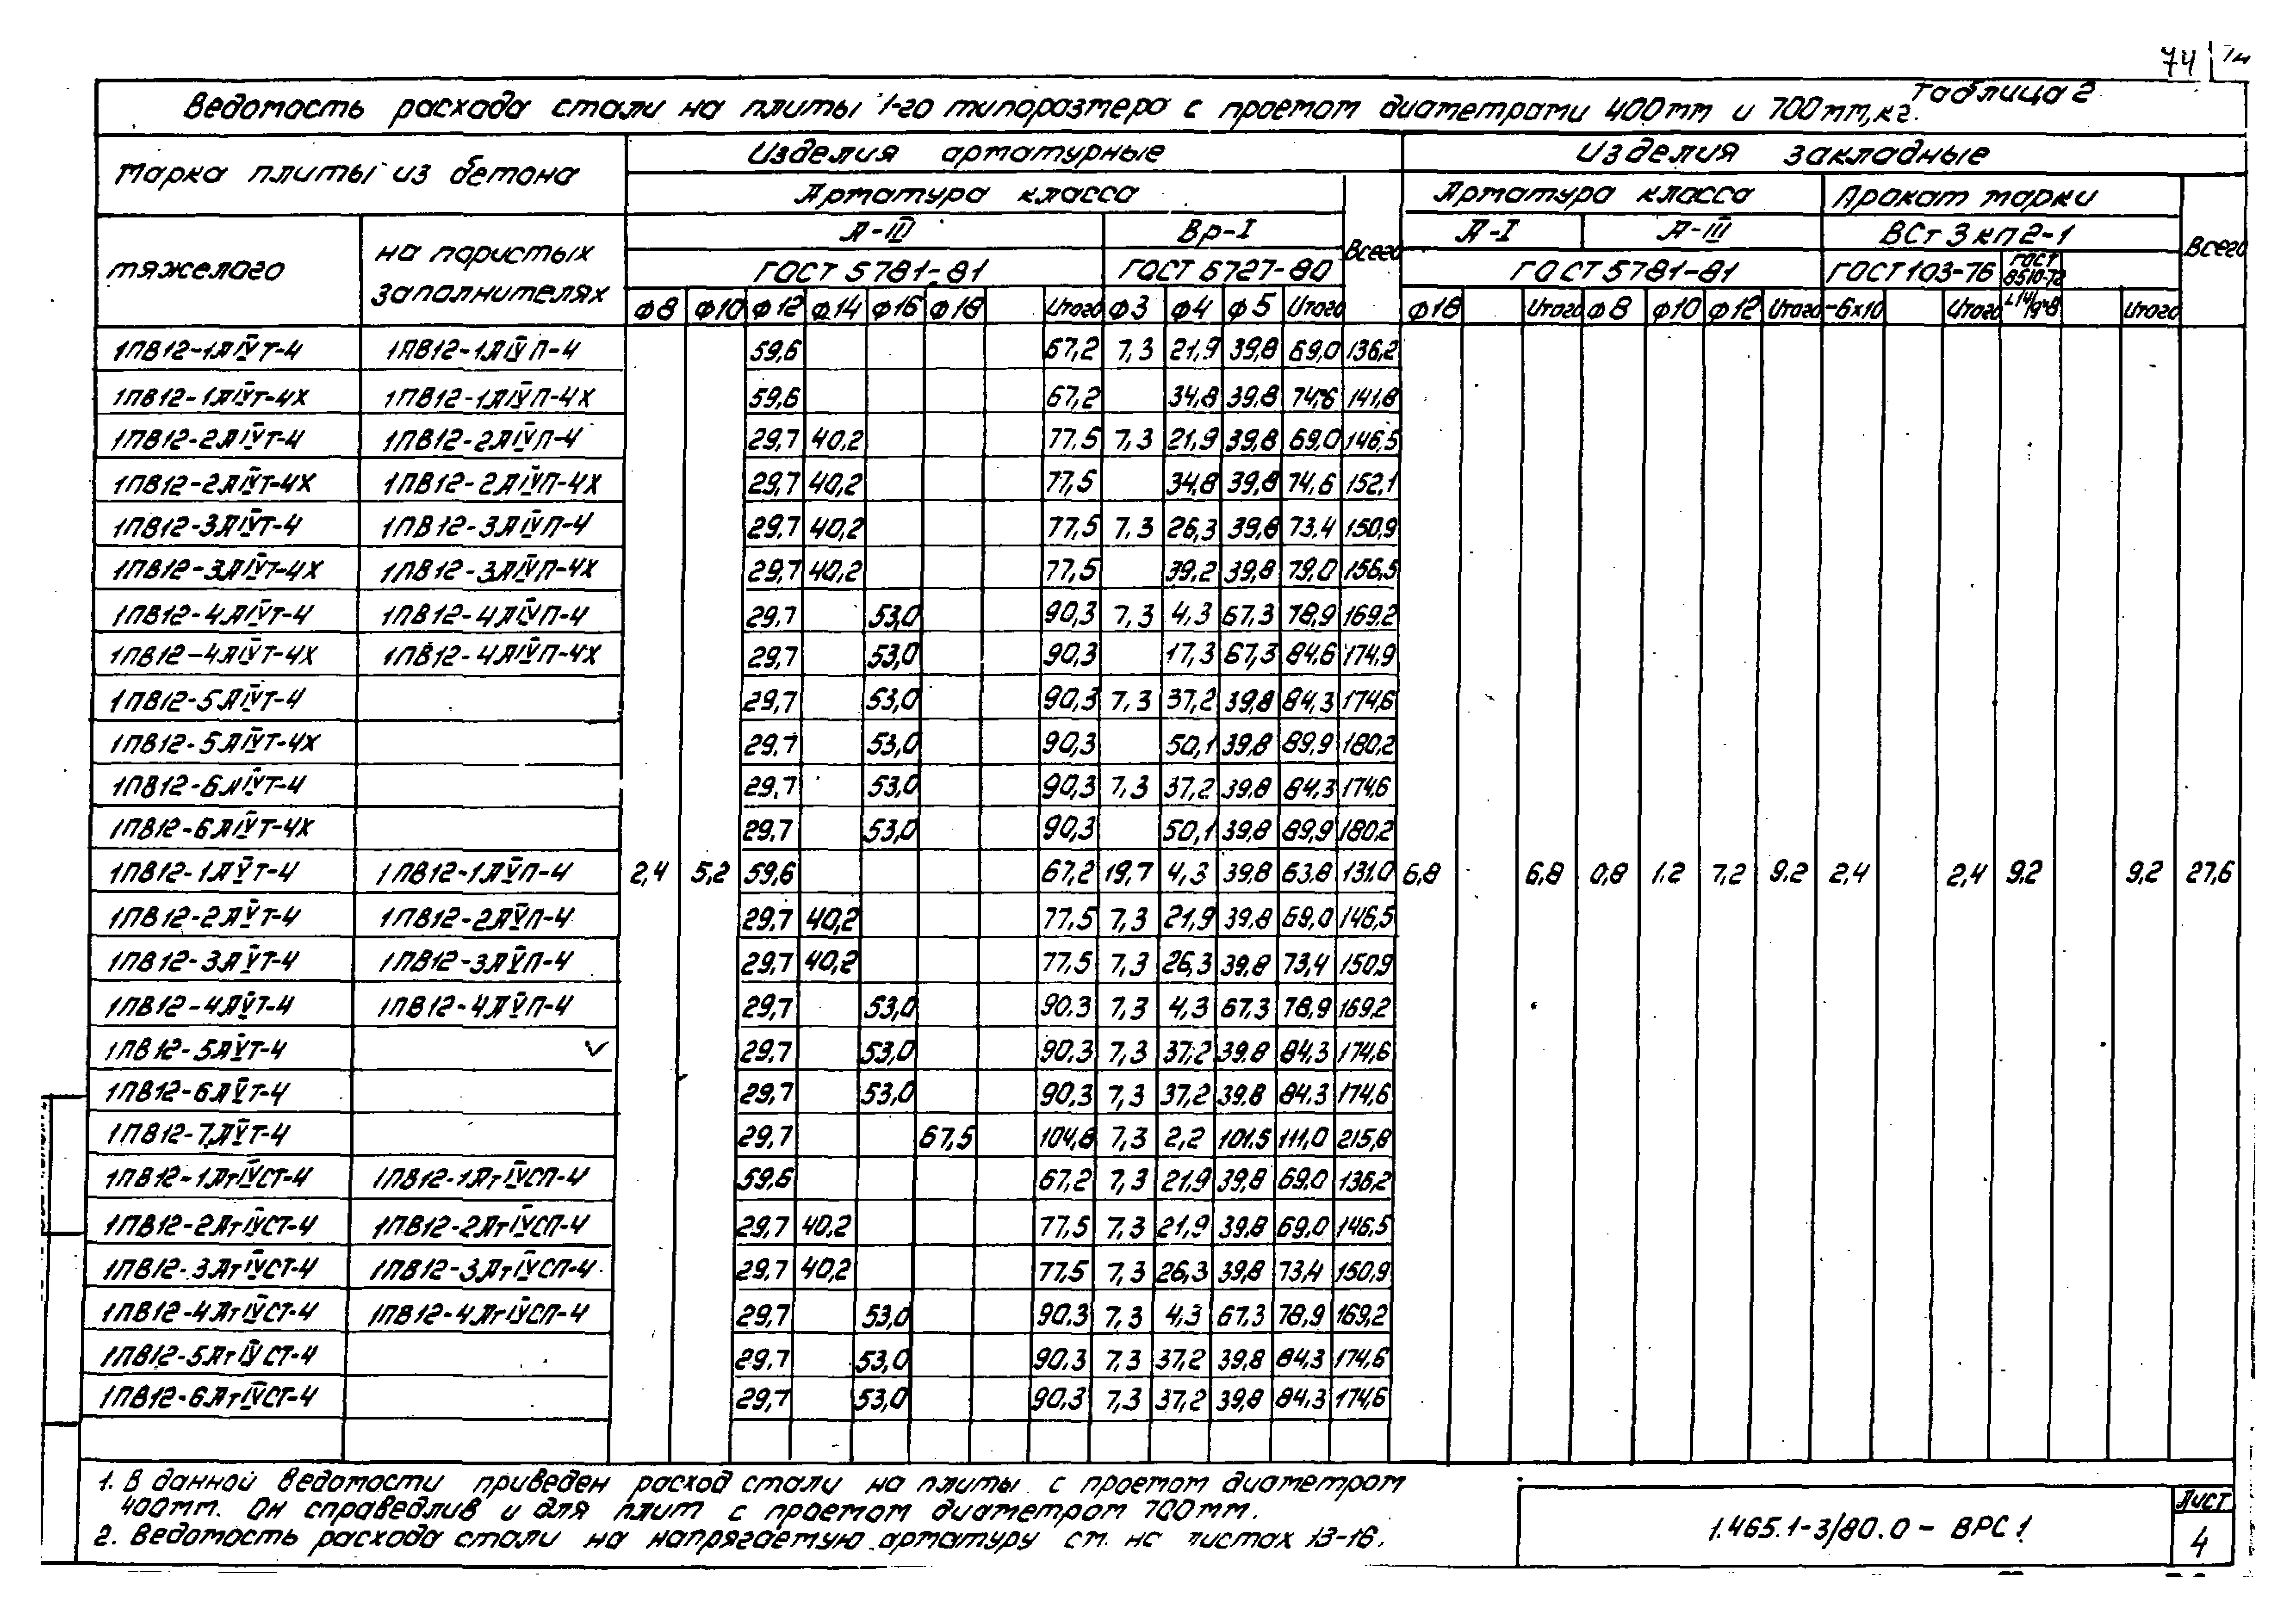 74
Таблица 2
Ведомость расхода стали на плиты 1-го типоразмера с проемом диаметрами 400мм и 700мм, кг.
Марка плиты из бетона Изделия арматурные Изделия закладные
Арматура класса Всего Арматура класса Прокат марки Всего
тяжелого на пористых заполнителях А-III Вр-I А-I А-III ВСт 3 кп2-1
ГОСТ 5781-81 ГОСТ 6727-80 ГОСТ 5781-81 ГОСТ 103-76 ГОСТ 8510-72
Ф8 Ф10 Ф12 Ф14 Ф16 Ф18 Итого Ф3 Ф4 Ф5 Итого Ф18 Итого Ф8 Ф10 Ф12 Итого -6х10 Итого Итого
1ПВ12-1АIVТ-4 1ПВ12-1АIVП-4 59,6 67,2 7,3 21,9 39,8 69,0 136,2
1ПВ12-1АIVТ-4Х 1ПВ12-1АIVП-4Х 59,6 67,2 34,8 39,8 74,6 141,8
1ПВ12-2АIVТ-4 1ПВ12-2АIVП-4 29,7 40,2 77,5 7,3 21,9 39,8 69,0 146,5
1ПВ12-2АIVТ-4Х 1ПВ12-2АIVП-4Х 29,7 40,2 77,5 34,8 39,8 74,6 152,1
1ПВ12-3АIVТ-4 1ПВ12-3АIVП-4 29,7 40,2 77,5 7,3 26,3 39,8 73,4 150,9
1ПВ12-3АIVТ-4Х 1ПВ12-3АIVП-4Х 29,7 40,2 77,5 39,2 39,8 79,0 156,5
1ПВ12-4АIVТ-4 1ПВ12-4АIVП-4 29,7 53,0 90,3 7,3 4,3 67,3 78,9 169,2
1ПВ12-4АIVТ-4Х 1ПВ12-4АIVП-4Х 29,7 53,0 90,3 17,3 67,3 84,6 174,9
1ПВ12-5АIVТ-4 29,7 53,0 90,3 7,3 37,2 39,8 84,3 174,6
1ПВ12-5АIVТ-4Х 29,7 53,0 90,3 50,1 39,8 89,9 180,2
1ПВ12-6АIVТ-4 29,7 53,0 90,3 7,3 37,2 39,8 84,3 174,6
1ПВ12-6АIVТ-4Х 29,7 53,0 90,3 50,1 39,8 89,9 180,2
1ПВ12-1АVТ-4 1ПВ12-1АVП-4 2,4 5,2 59,6 67,2 19,7 4,3 39,8 63,8 131,0 6,8 6,8 0,8 1,2 7,2 9,2 2,4 2,4 9,2 9,2 27,6
1ПВ12-2АVТ-4 1ПВ12-2АVП-4 29,7 40,2 77,5 7,3 21,9 39,8 69,0 146,5
1ПВ12-3АVТ-4 1ПВ12-3АVП-4 29,7 40,2 77,5 7,3 26,3 39,8 73,4 150,9
1ПВ12-4АVТ-4 1ПВ12-4АVП-4 29,7 53,0 90,3 7,3 4,3 67,3 78,9 169,2
1ПВ12-5АVТ-4 29,7 53,0 90,3 7,3 37,2 39,8 84,3 174,6
1ПВ12-6АVТ-4 29,7 53,0 90,3 7,3 37,2 39,8 84,3 174,6
1ПВ12-7АVТ-4 29,7 67,5 104,8 7,3 2,2 101,5 111,0 215,8
1ПВ12-1АтIVСТ-4 1ПВ12-1АтIVСП-4 59,6 67,2 7,3 21,9 39,8 69,0 136,2
1ПВ12-2АтIVСТ-4 1ПВ12-2АтIVСП-4 29,7 40,2 77,5 7,3 21,9 39,8 69,0 146,5
1ПВ12-3АтIVСТ-4 1ПВ12-3АтIVСП-4 29,7 40,2 77,5 7,3 26,3 39,8 73,4 150,9
1ПВ12-4АтIVСТ-4 1ПВ12-4АтIVСП-4 29,7 53,0 90,3 7,3 4,3 67,3 78,9 169,2
1ПВ12-5АтIVСТ-4 29,7 53,0 90,3 7,3 37,2 39,8 84,3 174,6
1ПВ12-6АтIVСТ-4 29,7 53,0 90,3 7,3 37,2 39,8 84,3 174,6
1. В данной ведомости приведен расход стали на плиты с проемом диаметром
400мм. Он справедлив и для плит с проемом диаметром 700мм.
2. Ведомость расхода стали на напрягаемую арматуру см. на листах 13-16.
1.465.1-3/80.0 - ВРС 1
Лист
4